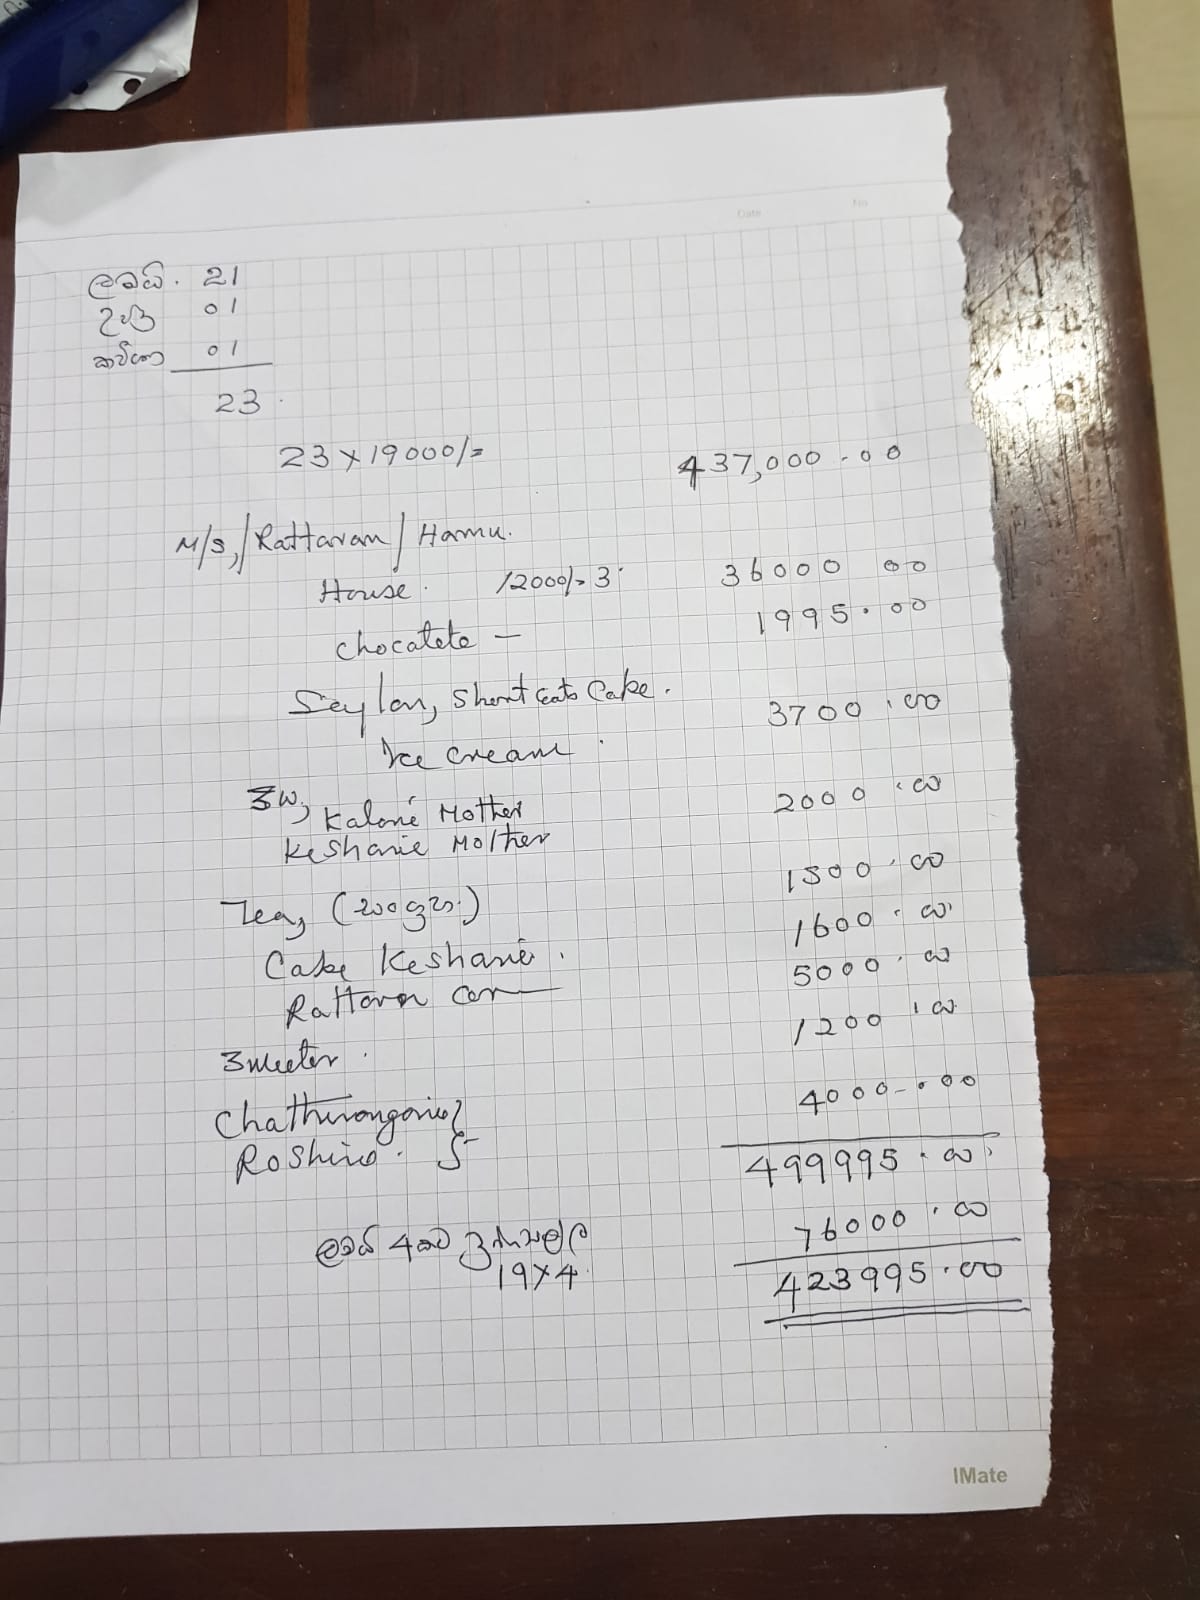 Date No
ළමයි. 21
උදාරි 01
කවිශා 01
23
23 x 19000/= 437,000.00
M/S,/Rattaran/Hamu.
House. 12000/= 3 36000 00
chocatete — 1995.00
Seylon, Short eats Cake. 3700.00
Ice cream
Kalone Mother 2000.00
Keshanie Mother
Tea, (200g) 1500.00
Cake Keshanie. 1600.00
Rattaran 5000.00
1200.00
Chathurangani 4000.00
Roshino.
499995.00
ළමයි 4 76000.00
19x4
423995.00
IMate